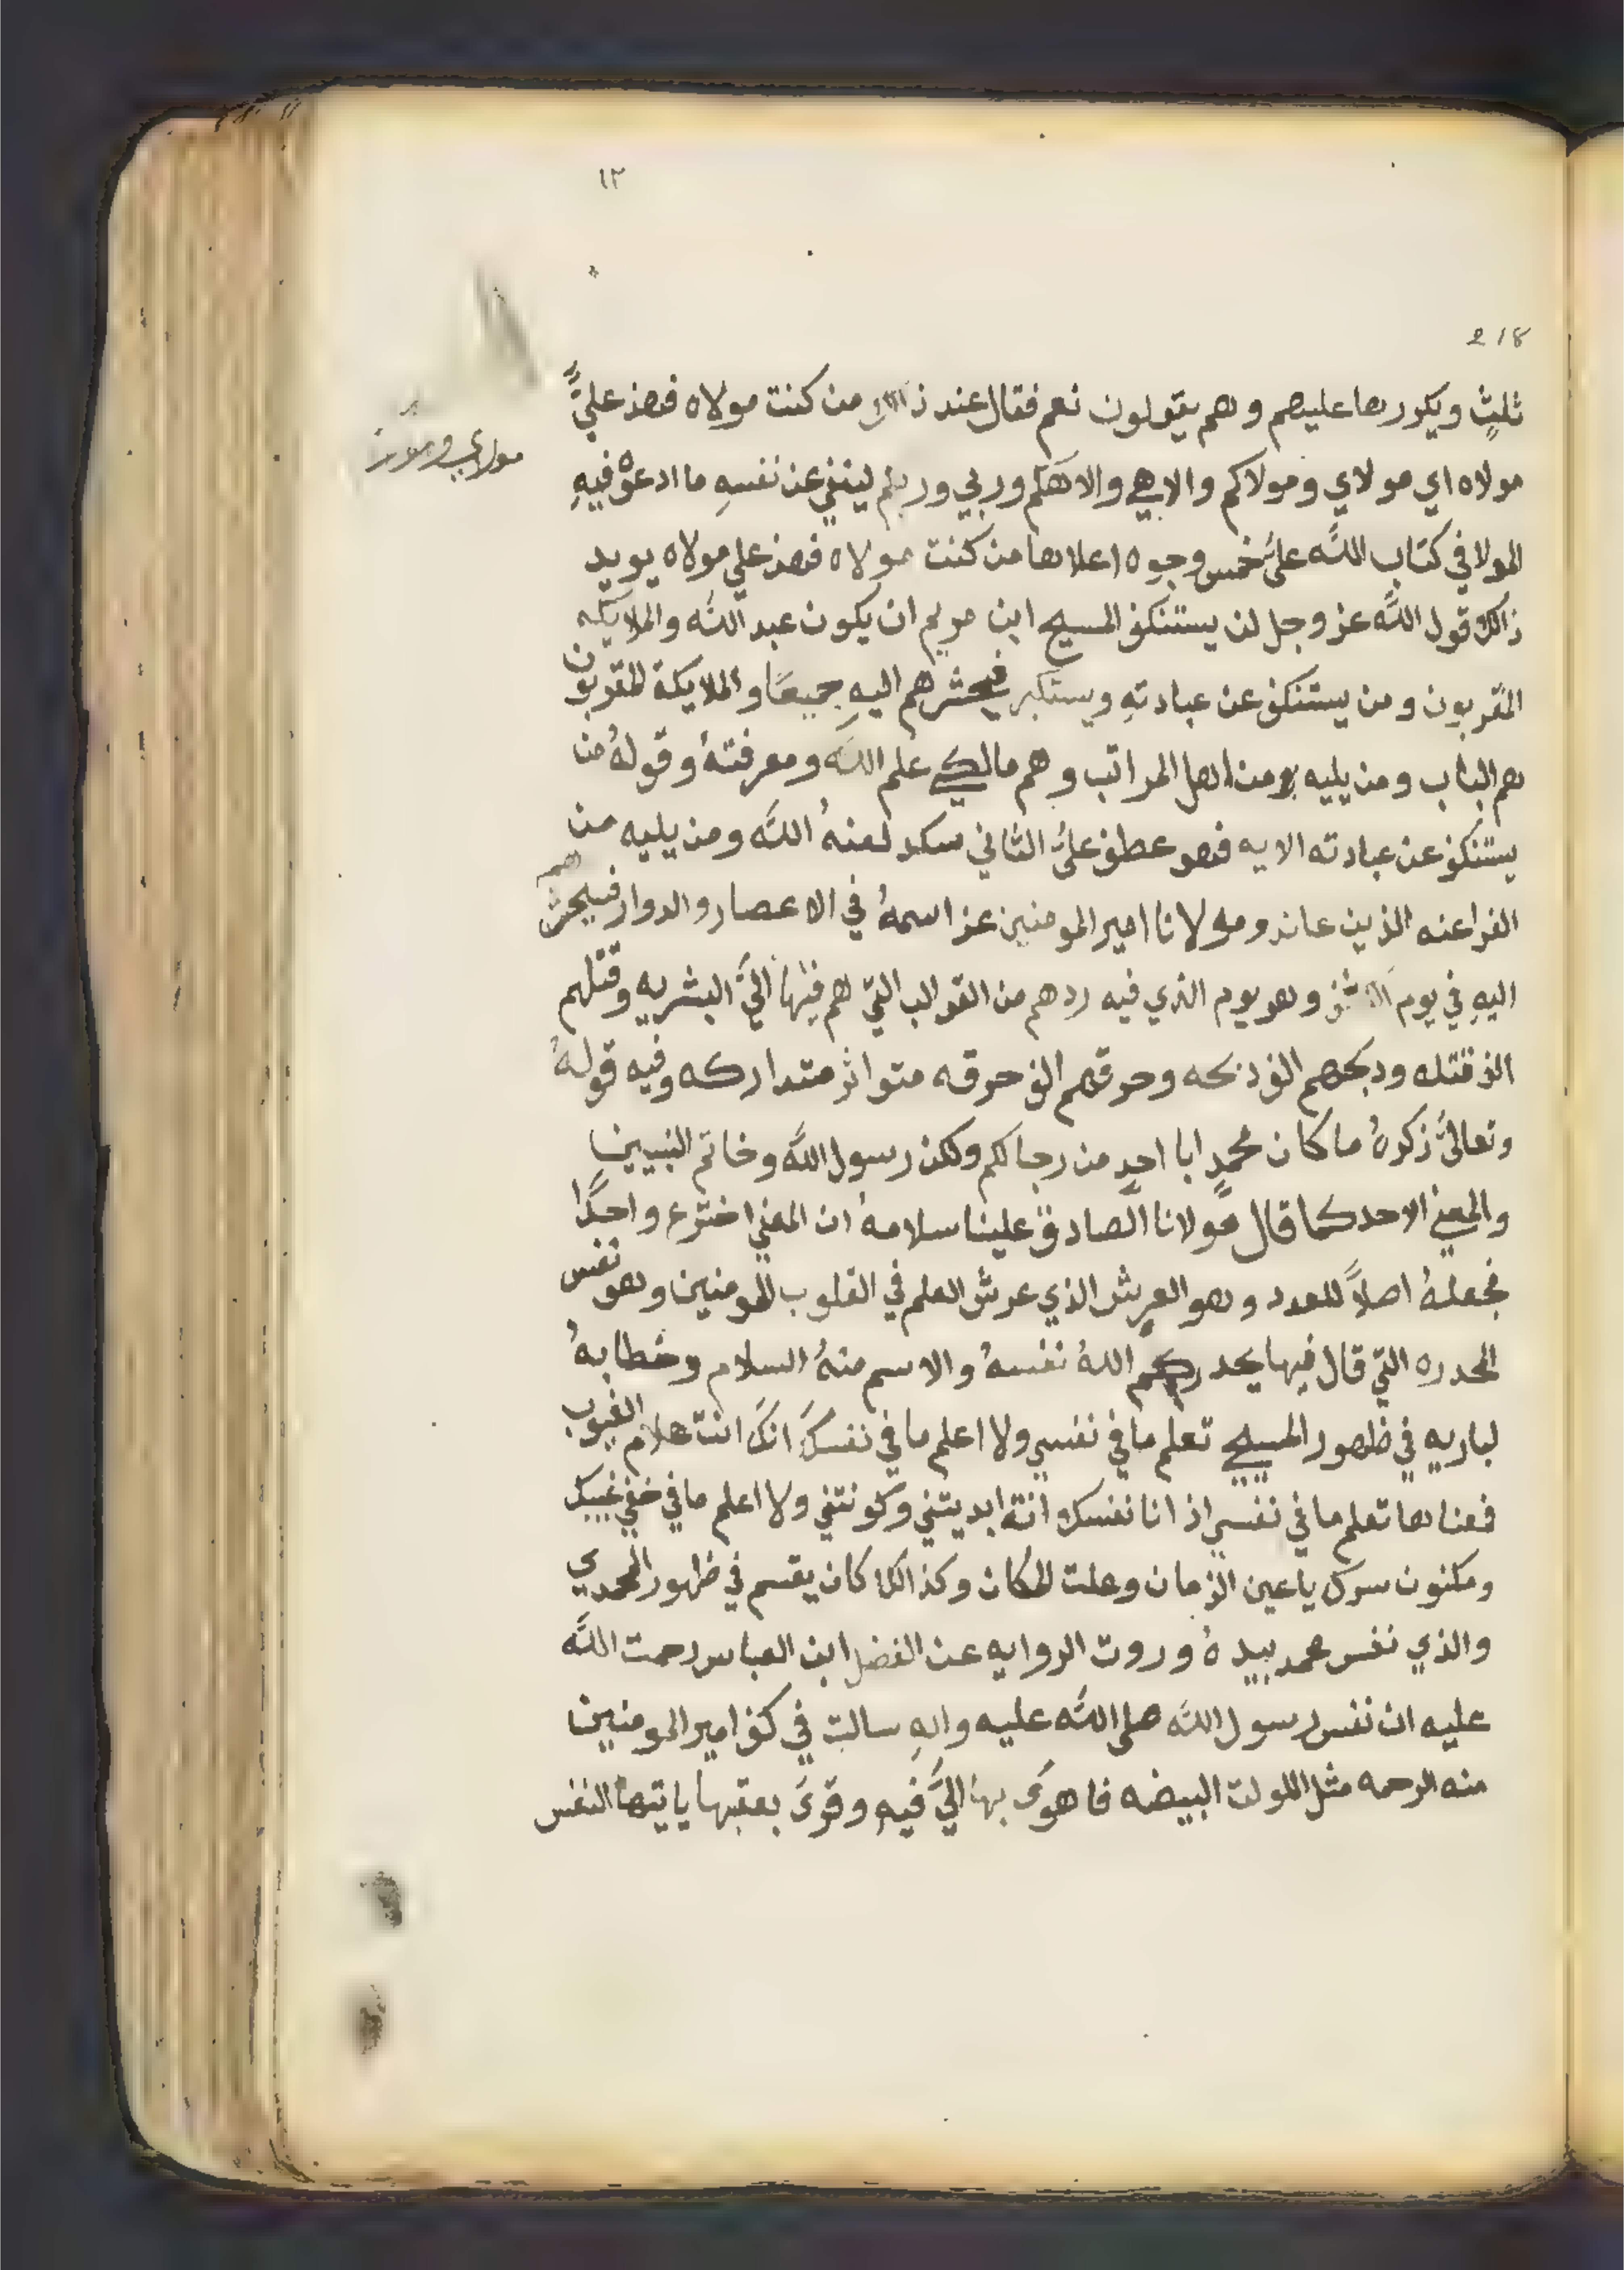 ١٢
218
ثلثٍ ويكررها عليهم وهم يقولون نعم فقال عند من كنت مولاه فهذ عليٌّ
مولاه اي مولاي ومولاكم والاهي والاهكم وربي وربكم لينفي عن نفسهِ ما ادعوْه فيهِ
المولا في كتاب اللّه علىُ خمس وجوه اعلاها من كنت مولاه فهذ علي مولاه يويد
ذالك قول اللّه عز وجل لن يستنكف المسيح ابن مريم ان يكون عبد اللّه والملايكه
المقربون ومن يستنكف عن عبادتهِ ويستكبر فيحشرهم اليهِ جميعًا والملايكة المقربون
هم الباب ومن يليه ومن اهل المراتب وهم مالكي علم اللّه ومعرفتهُ وقولهُ من
يستنكف عن عبادته الايه فهو عطف علىُ الثاني سكد لعنهُ اللّه ومن يليه من
الفراعنه الذين عاندو مولانا امير المومنين عز اسمهُ في الاعصار والدوار فيحشرهم
اليهِ في يوم وهو يوم الذي فيه ردهم من القوالب التي هم فيها اليَّ البشريه وقتلهم
الف قتله ودبحهم الف دبحه وحرقهم الف حرقه متواتر متداركه وفيه قولهُ
وتعالىُ ذكرهُ ما كان محمدٍ ابا احدٍ من رجالكم ولكن رسول اللّه وخاتم النبيين
والمعني الاحد كما قال مولانا الصادق علينا سلامهُ ان المعني اخترع واحدًا
فجعلهُ اصلاً للعدد وهو العرش الذي عرش العلم في القلوب المومنين وهو نفس
المحدره التي قال فيها يحدركم اللهُ نفسهُ والاسم منهُ السلام وخطابهُ
لباريه في ظهور المسيح تعلم ما في نفسي ولا اعلم ما في نفسكَ انكَ انت علام الغيوب
فعناها تعلم ما في نفسي اذ انا نفسك انتة ابديتني وكونتني ولا اعلم ما في خفي غيبك
ومكنون سرك يا عين الزمان وعلت المكان وكذالك كان يقسم في ظهور المحمدي
والذي نفس محمد بيدهُ وروت الروايه عن الفضل ابن العباس رحمت اللّه
عليه ان نفس رسول اللّه صلى اللّه عليه والهِ سالت في كف امير المومنين
منه الرحمه مثل اللولت البيضه فاهوىَ بها اليَّ فيهِ وقرىَ بعقبها يايتها النفس